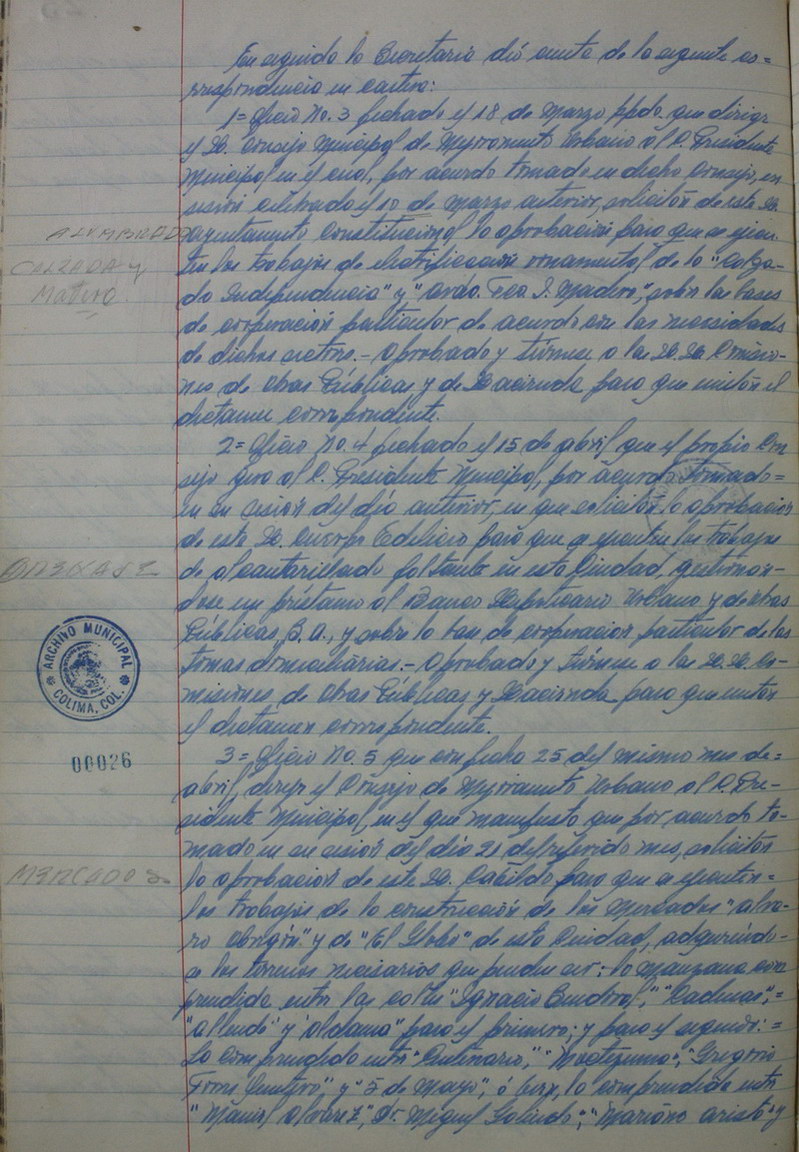 En seguida la Secretaría dió cuenta de la siguiente co=
rrespondencia en cartera:
1= Oficio No. 3 fechado el 18 de Marzo ppdo. que dirige
el H. Consejo Municipal de Mejoramiento Urbano al C. Presidente
Municipal en el cual, por acuerdo tomado en dicho Consejo, en
sesión celebrada el 10 de marzo anterior, solicitan de este H.
ALUMBRADO
Ayuntamiento Constitucional la aprobación para que se ejecu-
CALZADA y
ten los trabajos de electrificación ornamental de la "Calza-
Madero
da Independencia" y "Avda. Fco. I. Madero", sobre las bases
de cooperación particular de acuerdo con las necesidades
de dichos sectores.- Aprobado y túrnese a las H.H. Comisio-
nes de Obras Públicas y de Hacienda para que emitan el
dictamen correspondiente.
2= Oficio No. 4 fechado el 15 de abril, que el propio Con-
sejo gira al C. Presidente Municipal, por acuerdo tomado=
en su sesión del día anterior, en que solicitan la aprobación
de este H. Cuerpo Edilicio para que se ejecuten los trabajos
de alcantarillado faltante en esta Ciudad, gestionán-
dose un préstamo al Banco Hipotecario Urbano y de Obras
Públicas, S. A., y sobre la base de cooperación particular de las
tomas domiciliarias.- Aprobado y túrnese a las H.H. Co-
misiones de Obras Públicas y Hacienda para que emitan
el dictamen correspondiente.
ARCHIVO MUNICIPAL
COLIMA, COL.
00026
3= Oficio No. 5 que con fecha 25 del mismo mes de=
abril, dirije el Consejo de Mejoramiento Urbano al C. Pre-
sidente Municipal, en el que manifiesta que por acuerdo to-
mado en su sesión del día 21 del referido mes, solicitan
MERCADOS
la aprobación de este H. Cabildo para que se ejecuten=
los trabajos de la construcción de los Mercados "Alva-
ro Obregón" y de "El Globo" de esta Ciudad, adquiriéndo-
se los terrenos necesarios que pueden ser: la Manzana com
prendida entre las calles "Ignacio Sandoval", "Cadenas",=
"Allende" y "Aldama" para el primero; y para el segundo:=
La comprendida entre "Centenario", "Moctezuma", "Gregorio
Torres Quintero" y "5 de Mayo", ó bien, la comprendida entre
"Manuel Alvarez", "Dr. Miguel Galindo", "Mariano Arista" y